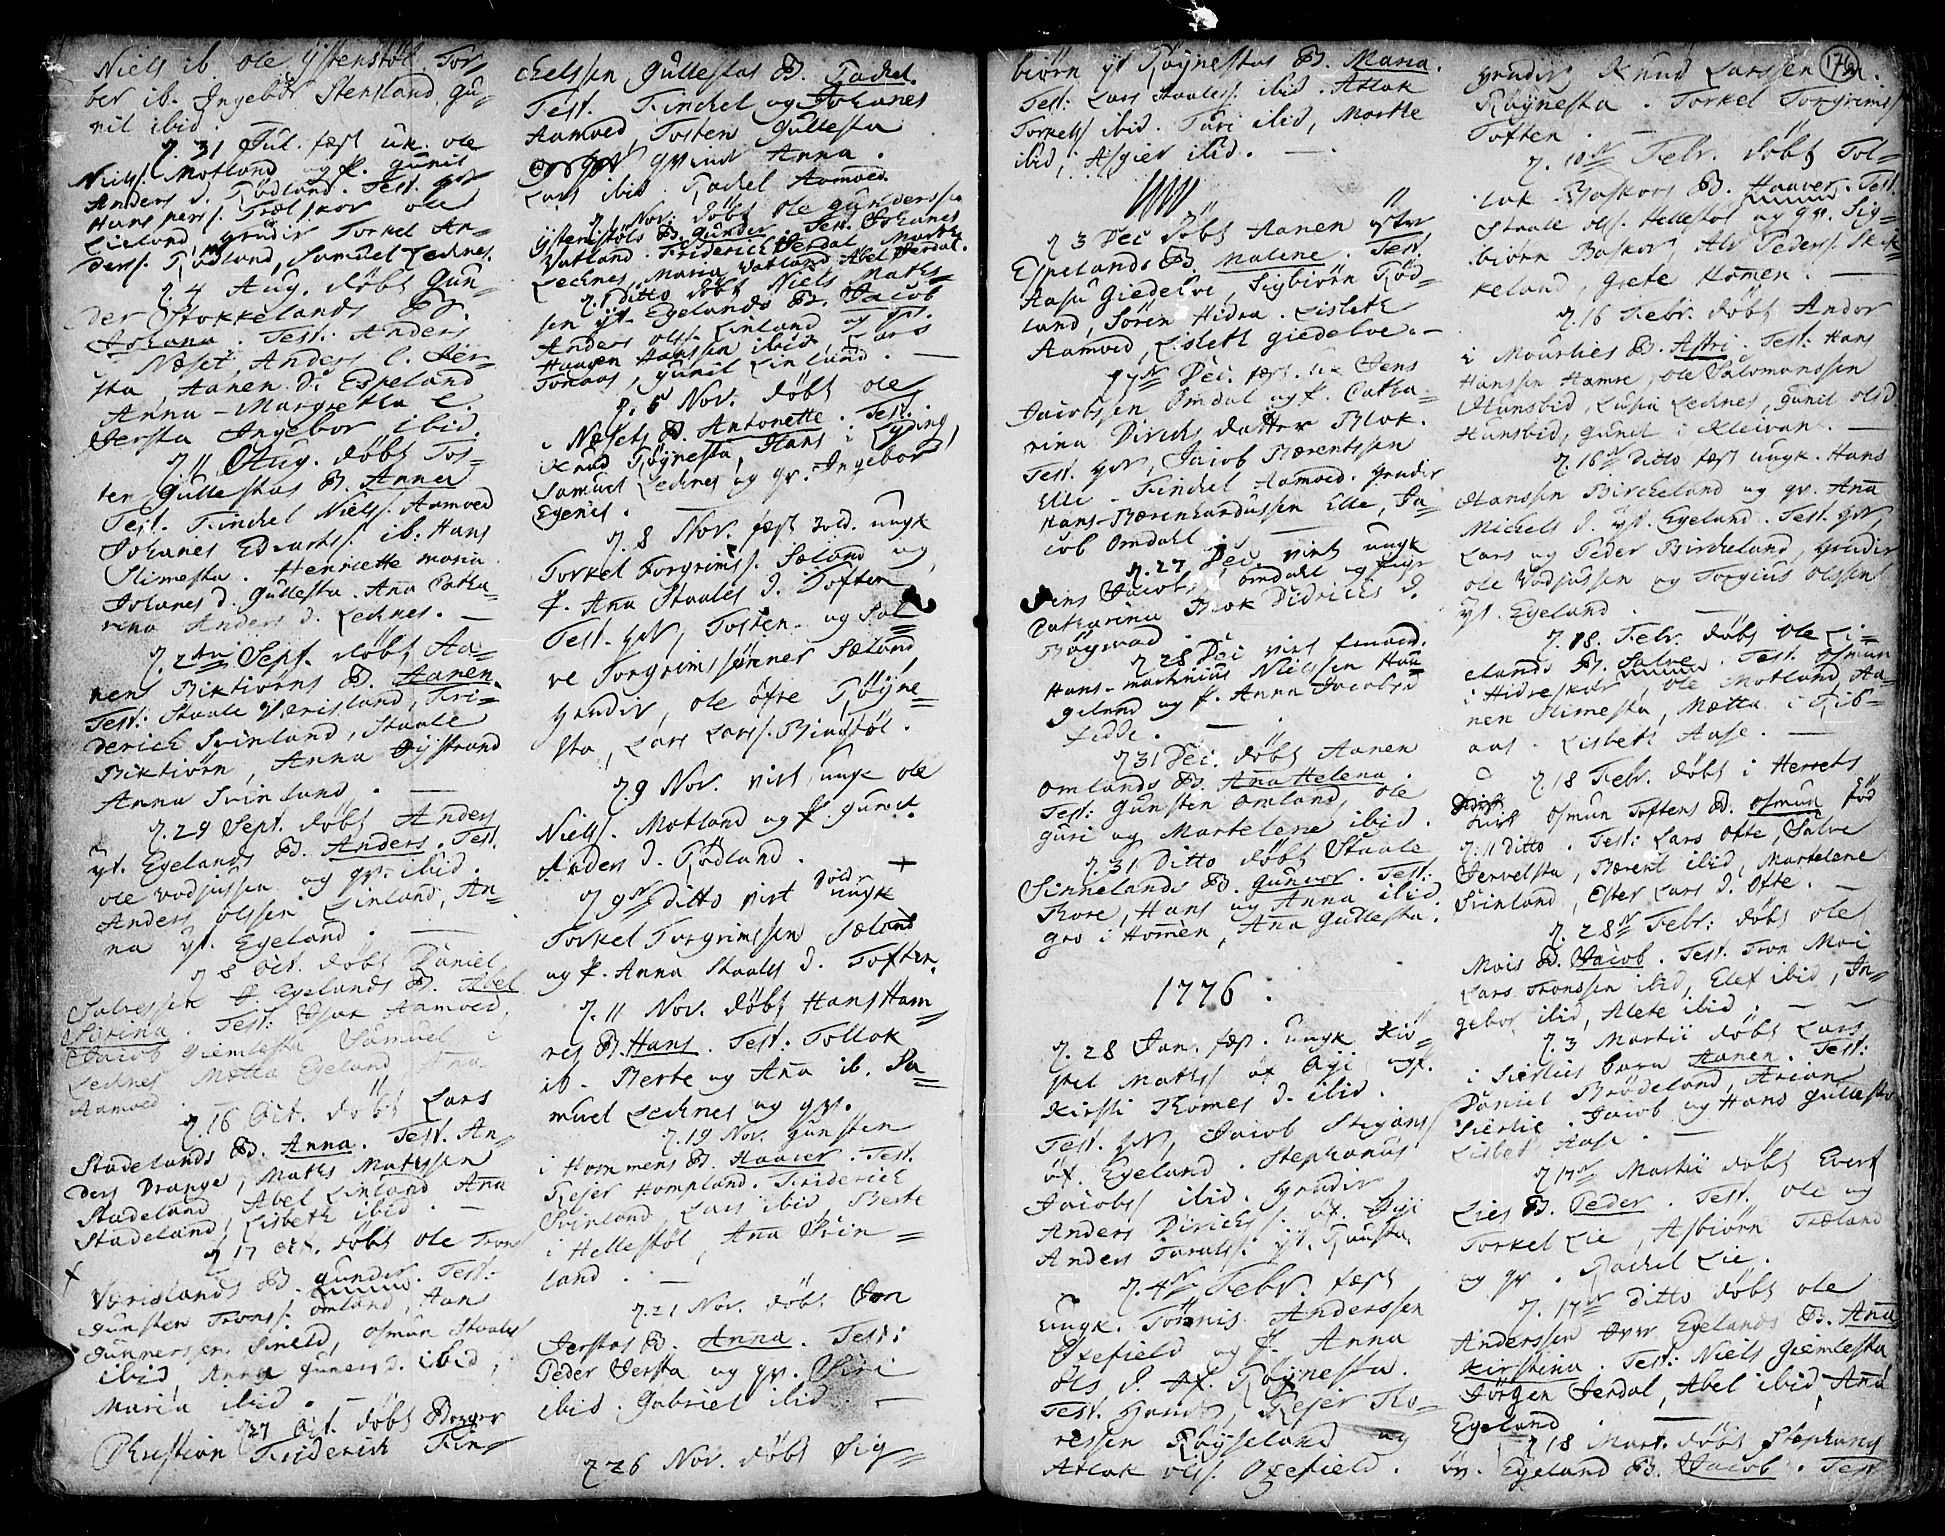 Niels ib. ole ÿstenstöl. Tor-
ber ib. Ingebor Stensland gu-
nil ibid.
d. 31 Jul. fæst uk. ole
Niels. Motland og P. gunil
Anders d. Rödland. Test. gvr
Hans pers. Trælskor ole
Lieland, grudir Torkel An-
ders. Rödland, Samuel Lednes.
d. 4 Aug. döbt Gun-
der Stokkelands B.
Johana. Test: Anders
Næset, Anders l. Jer-
sta, Aanen d. Espeland
Anna-Margretha l.
Versta Ingebor ibid.
d. 11 Aug. döbt Tos-
ten Gullestas B. Anna
Test. Finckel Niels. Aamoed
Johanes Edvarts. ib. Hans
Slimesta. Henriette maria
Johanes d. Gullesta. Ana Catha-
rina Anders d. Lednes. —
d. 2den Sept. döbt Aa-
nens Birktiörns B. Aanen.
Test: Staale Værisland, Fri-
derich Svinland, Staale
Birktiörn, Anna Dÿstrand
Anna Svinland. —
d. 29 Sept. döbt Anders
yt. Egelands B. Anders. Test.
ole Vodjussen og gv. ibid.
Anders olssen Linland, An-
na yt. Egeland. —
d 8 Oct. döbt Daniel
Salvessen J. Egelands B. Abel
Serina. Test: Isac Aamoed,
Jacob Giemlesta Samuel i
Lednes Mætta Egeland Ana
Aamoed.
d. 16 Oct. döbt Lars
Stadelands B. Anna. Test. An-
ders Drange, Maths Mathssen
Stadeland Abel Linland Ana
Stadeland, Lisbeth ibid. —
d 17 Oct. döbt ole Trons
Værislands B. gunder. Test:
Gunsten Trons. omland, Hans
Gunnerssen Sineld, Osmun Staales
ibid Anna guners d. ibid,
Maria ibid. —
d 27 Oct. döbt Borger
Christian Friderich Fin-
ckelssen Gullestas B. Rachel.
Test. Finckel og Johanes
Aamoed Tosten Gullesta
gvind Anna.
Lars ibid. Rachel Aamoed.
d. 1 Nov: döbt ole gunderssen
ÿstenstöls B. gunder. Test. Johanes
Vatland. Friderich Jerdal Marthe
Lednes, Maria Vatland, Abel Jerdal.
d. 1 Ditto döbt Niels Maths-
sen yt. Egelands B. Jacob
Anders olss. Linland og gv.
Haagen Hanssen ibid, Lars
Tonaas, gunil Linland. —
d. 6 Nov. döbt ole
i Næsets B. Antonette. Test.
Knud Röynesta, Hans i Ryding,
Samuel Lednes og gv. Ingebor
Egenes. —
d. 8 Nov. fæst sold. ungk
Torkel Torgrims. Sæland og
P. Ana Staales d. Toften
Test. gvr, Tosten og Sal-
ve Torgrimssönner Sæland,
grudir, ole öfre Röyne-
sta, Lars Larss. Ringstöl.
d. 9 Nov. viet ungk ole
Niels. Motland og P. gunil
Anders d. Rödland. +
d 9de Ditto viet sold. ungk
Torkel Torgrimssen Sæland
og P. Anna Staales d. Toften.
d. 11 Nov. döbt Hans Ham-
res B. Hans. Test: Tollak
ib. Berte og Ana ib. Sa-
muel Lednes og gv.
d. 19 Nov. Gunsten
i Hommens B. Haaver. Test.
Rejer Hompland. Friderich
Svinland Lars ibid, Berte
i Hellestöl, Ana Svin-
land. —
d. 21 Nov. döbt Jon
Jerstas B. Anna. Test:
Peder Versta og gv. Siri
ibid. Gabriel ibid. —
d. 26 Nov. döbt Sig-
biörn yt Röynestas B. Maria.
Test: Lars Staales. ibid. Atlak
Torkels. ibid. Turi ibid, Marthe
ibid, Asgier ibid. —.
d 3 Dec döbt Aanen östre
Espelands B. Malene. Test.
Aasu Giedelve, Sigbiörn Röd-
land, Sören Hidra. Lisbeth
Aamoed, Lisbeth giedelve. —
d 7de Dec. fæst. uk Jens
Jacobssen Omdal og P. Catha-
rina Dirchs datter Blok.
Test. gvr, Jacob Bærentssen
Elle - Finckel Aamoed. grudir
Hans-Bærenhardussen Elle, Ja-
cob Omdal.
d. 27 Dec. viet ungk
Jens Jacobs. omdahl og pige
Catharina Blok Didrichs d.
Bögwad.
d 28 Dec viet Enroed.
Hans-martinius Nielssen Hau-
geland og P. Anna Jacobs d
Fedde. —
d 31 Dec. döbt Aanen
omlands B. Ana Helena.
Test: Gunsten omland, ole
guri og Martelene ibid.
d. 31 Ditto döbt Staale
Sinnelands B. gunvor. Test:
Thore, Hans og Anna ibid
gro i Homen, Ana Gullesta.
1776.
d. 28 Jan. fæst. ungk Kiö-
stel Maths. öf. Øyi og P.
Kirsti Thomes d. ibid.
Test. gvr, Jacob Stephans.
öf. Egeland. Stephanus
Jacobs. ibid. grudir
Anders Dirichs. öf. Øyi
Anders Taralss. yt. Rausta.
d. 4de Febr. fæst
ungk. Tönnis Anderssen
Oxefield og P. Anna
ols d. öf. Röynesta.
Test. gvr, Rejer Tho-
ressen Röyseland og
Atlak ols. Oxefield.
176
grudir Knud Larssen
Röynesta. Torkel Torgrims.
Toften. —
d. 10de Febr. döbt Tol-
lak Baskors B. Haaver. Test.
Staale ols. Hellestöl og gv. Sig-
biörn Baskor, Alv Peders. Skik-
keland, Grete Homen. —
d. 16 Febr. döbt Andor
i Mourlies B. Astri. Test: Hans
Hanssen Hamre, ole Salomonssen
Hunsbid, Lusia Lednes, gunil ols d.
Hunsbid, gunil i Kleivan. —
d. 16de ditto fæst ungk. Hans
Hanssen Birckeland og gv. Ana
Michels d. yt. Egeland. Test. gvr,
Lars og Peder Birckeland, grudir
ole Vodjussen og Torgius olssen
yt. Egeland. —
d. 18. Febr. döbt ole Li-
elands B. Salve. Test. Osmun
i Hidreskar, ole Motland, Aa-
nen Slimesta, Mætta i Rib-
aas. Lisbeth Aase. —
d. 18 Febr. döbt i Herrets
Kirk Osmun Toftens B. Osmun föd
d. 11 ditto. Test: Lars Ofte, Salve
Jervelsta, Bærent ibid, Martelene
Svinland, Ester Lars d. Ofte. —
d. 28de Febr. döbt ole
Mois B. Jacob. Test. Tron Moi
Lars Tronssen ibid, Elef ibid, In-
gebor ibid, Alete ibid. —
d. 3 Martii döbt Lars
i Sierlies barn Aanen. Test:
Daniel Brödeland, Arian
Sierlie. Jacob og Hans gullesta
Lisbet Aase. —
d 17de Martii döbt Evert
Lies B. Peder. Test. ole og
Torkel Lie, Asbiörn Træland
og gv. Rachel Lie.
d. 17de ditto döbt ole
Anderssen över Egelands B. Ana
Kirstina. Test: Niels Giemlesta
Jörgen Jerdal, Abel ibid, Ana
Egeland. —
d 18 Mart. döbt Stephanus
öv. Egeland B. Jacob. Test